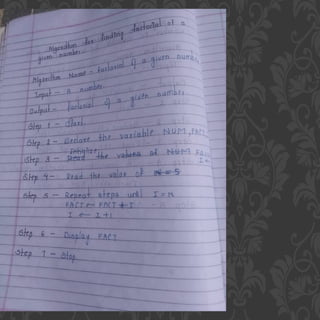 Algorithm for finding factorial of a
given number.
Algorithm Name - Factorial of a given number
Input - a number
Output - factorial of a given number
Step 1 - Start
Step 2 - Declare the variable NUM, FACT
Step 3 - the values of FACT
Step 4 - Read the value of
Step 5 - Repeat steps until I = N
FACT ← FACT * I
I ← I + 1
Step 6 - Display FACT
Step 7 - Stop